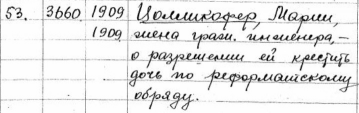 53. 3660 1909 Цолликофер, Марии,
1909 жена гражд. инженера, —
о разрешении ей крестить
дочь по реформатскому
обряду.